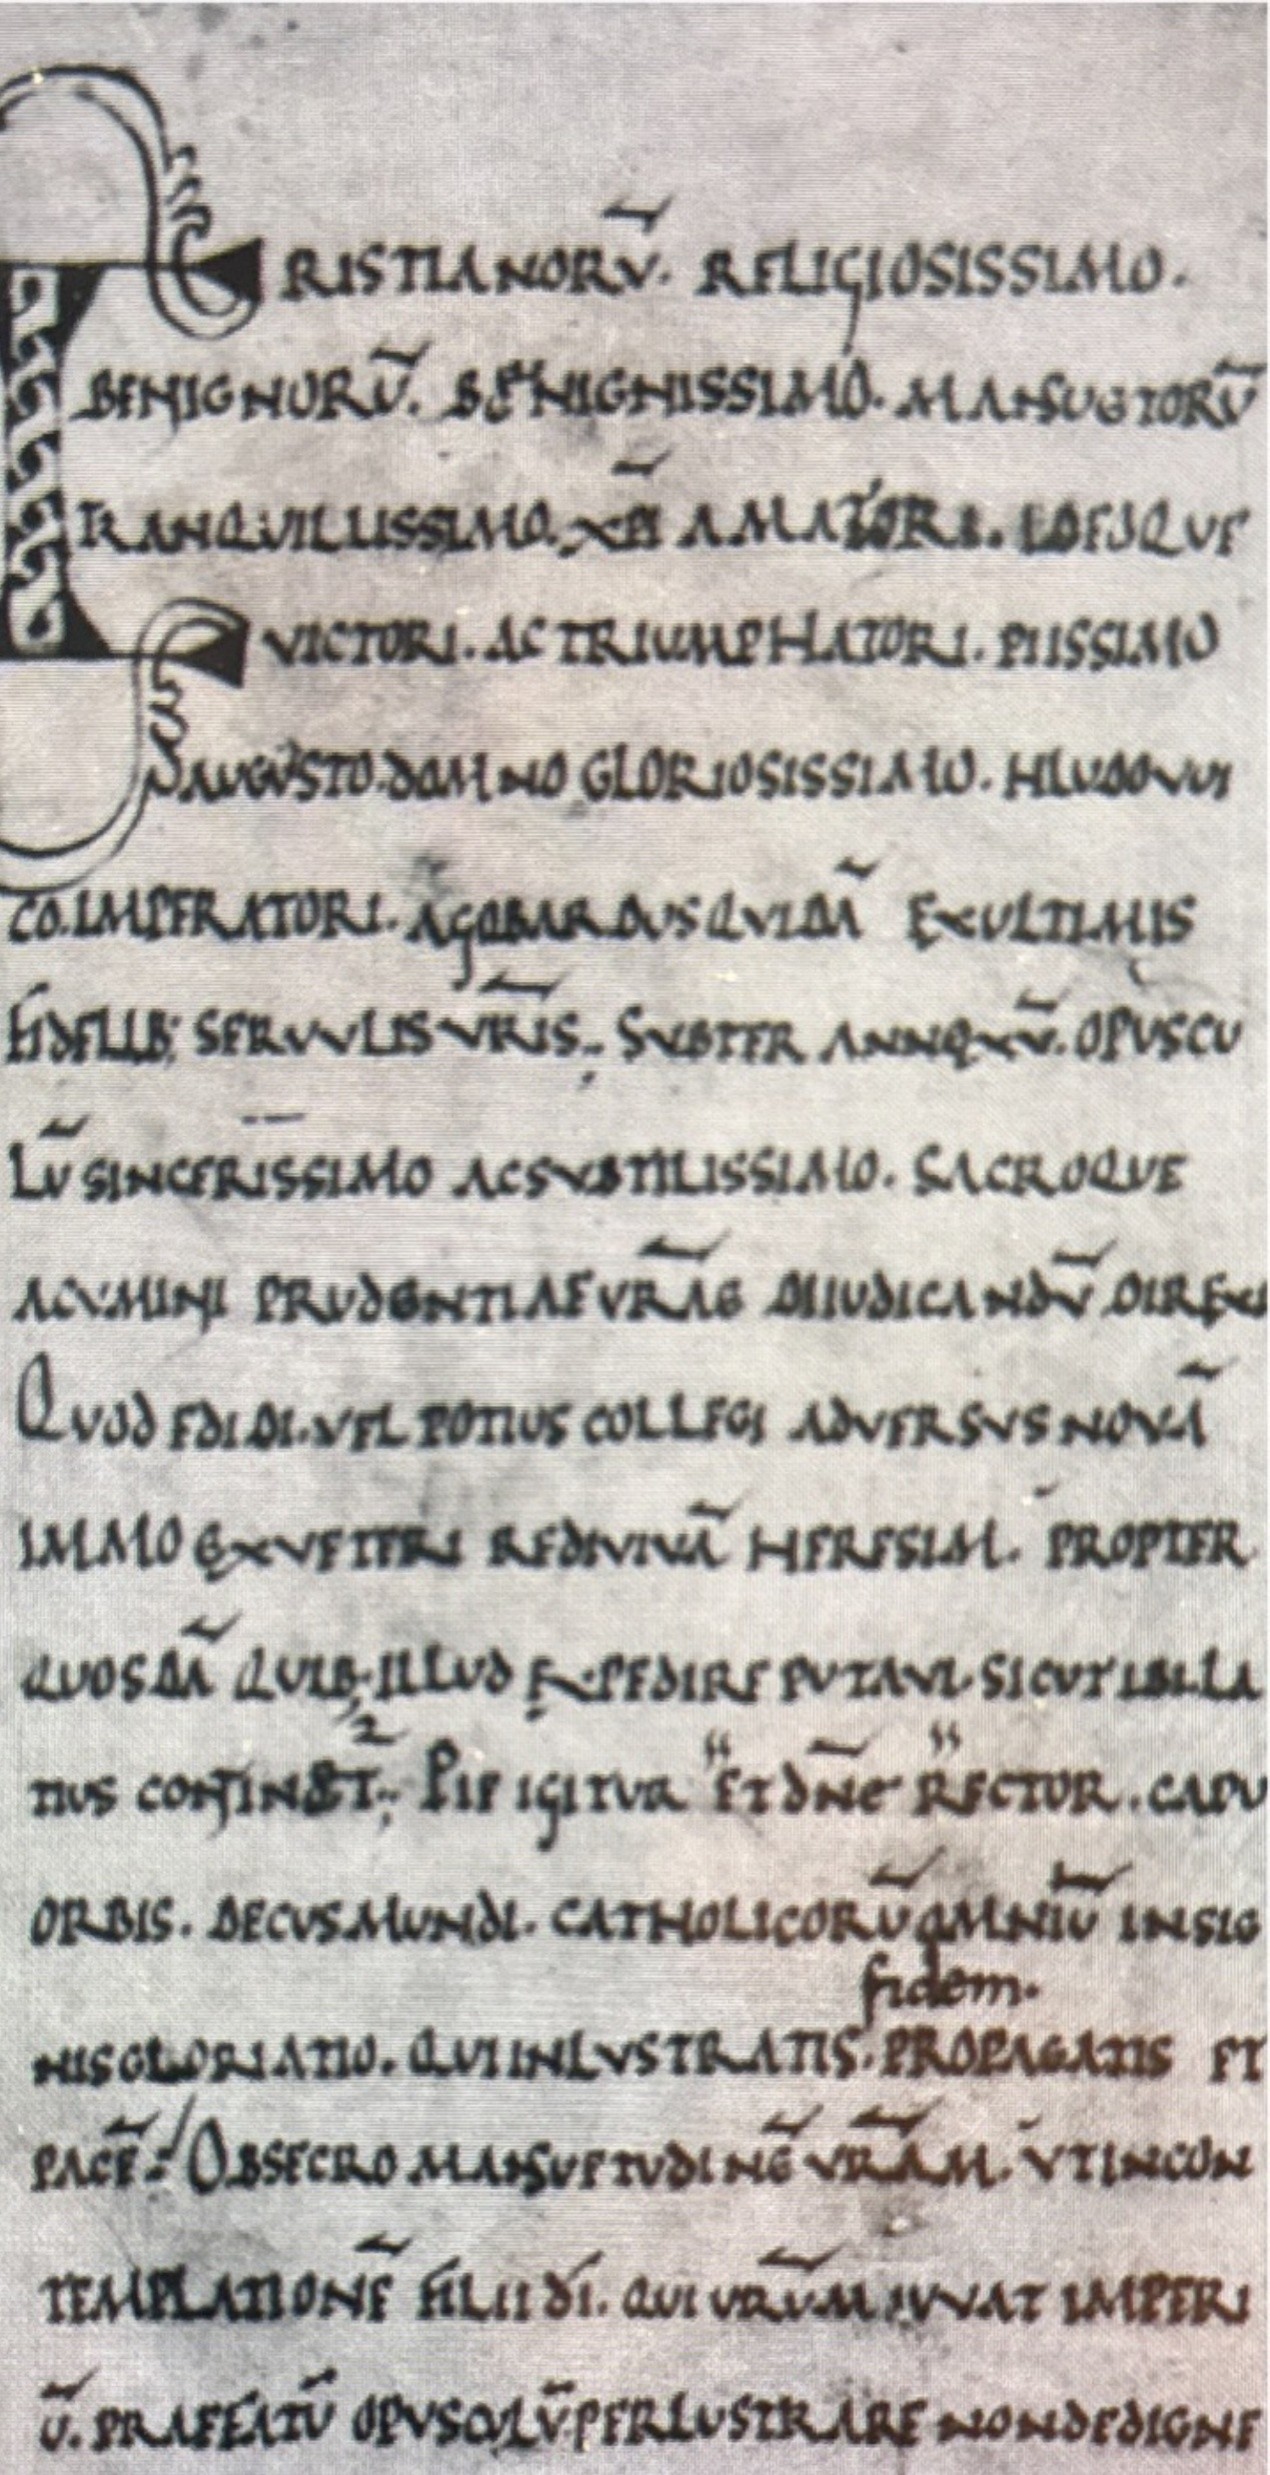 CRISTIANORV̄. RELIGIOSISSIMO.
BENIGNORŪ. BENIGNISSIMO. MANSUETORŪ
TRANQVILLISSIMO. XP̄I AMATORI. EDESIQVE
VICTORI. AC TRIUMPHATORI. PIISSIMO
AUGVSTO. DOMNO GLORIOSISSIMO. HLUDOVUI
CO. IMPERATORI. AGOBARDUS QVIDĀ EX ULTIMIS
FIDELIB; SERVVLIS VR̄IS; SVBTER ANNEXV̄. OPUSCU
LV̄ SINCERISSIMO AC SVBTILISSIMO. SACROQUE
ACVMINI PRUDENTIAE VR̄AE DIIUDICANDV̄ DIREXI
QVOD EDIDI. VEL POTIUS COLLEGI ADVERSVS NOVĀ
IMMO EX VETERI REDIVIVĀ HERESIM. PROPTER
QUOSDĀ QUIB; ILLUD EXPEDIRE PUTAVI. SICUT IBI LA
TIUS CONTINETVR; PIE IGITVR ET DN̄E RECTOR. CAPU
ORBIS. DECVS MUNDI. CATHOLICORŪ OMNIŪ INSIG
fidem.
NIS GLORIATIO. QVI INLVSTRATIS. PROPAGATIS ET
PACĒ; OBSECRO MANSVETVDINĒ VR̄AM. VT IN CON
TEMPLATIONĒ FILII DĪ. QUI VR̄UM IUVAT IMPERI
Ū. PRAEFATŪ OPVSCULV̄ PERLUSTRARE NON DEDIGNE